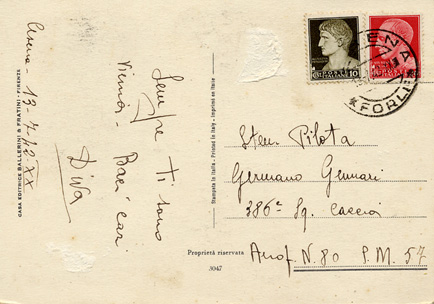 Cesena
13-4-42 XX
Sempre ti sono
vicina - Baci cari
Diva
CASA EDITRICE BALLERINI & FRATINI - FIRENZE
Stampata in Italia - Printed in Italy - Imprimé en Italie
Proprietà riservata
3047
POSTE ITALIANE
10
CESENA
*(FORLI)*
Pilota
Germano Gennari
386ª Sq. Caccia
N. 80 P.M. 57